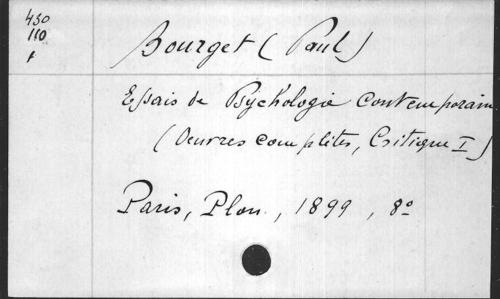 450
110
f
Bourget (Paul)
Essais de Psychologie contemporaine
(Oeuvres complètes, Critique I)
Paris, Plon, 1899, 8º